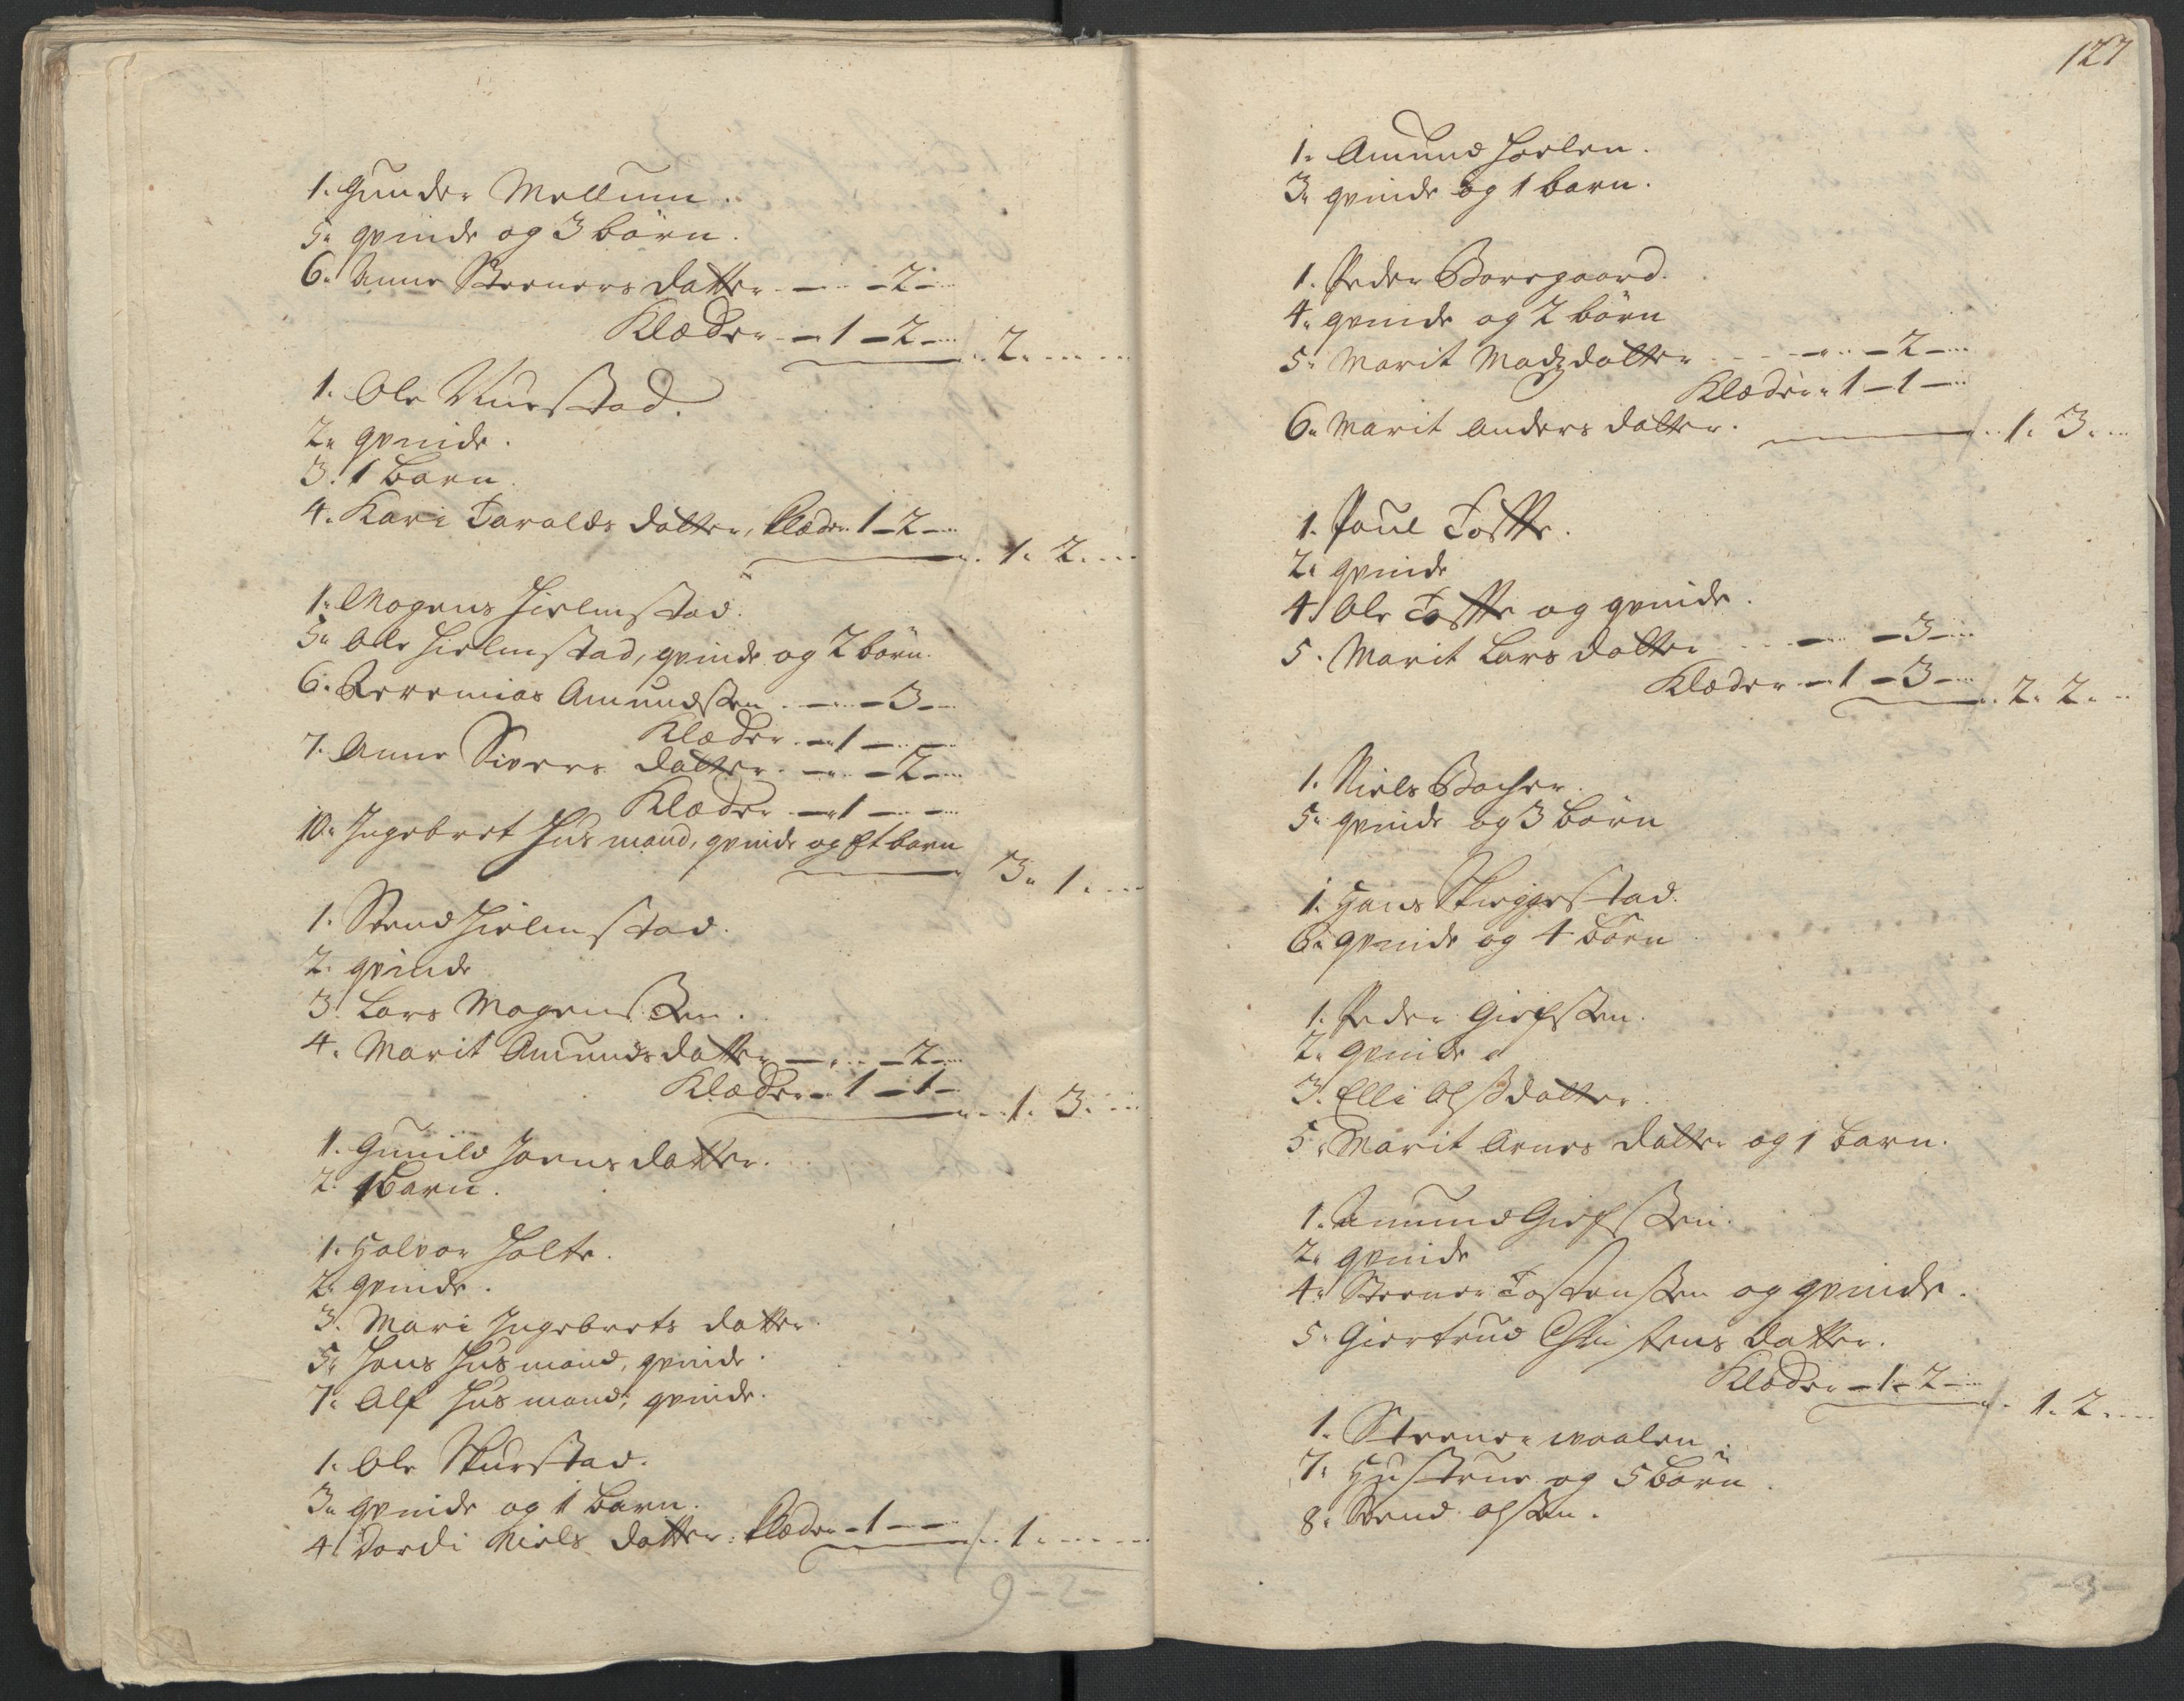 1. Gunder Mellum.
5. qvinde og 3 börn.
6. Anne Steenersdatter - - 2 -
Klæder - 1 - 2 - 2.
1. Ole
2. qvinde.
3. 1 barn.
4. Kari Taraldsdatter, klæder 1 - 2 -
1. 2.
1. Mogens Hielmstad.
5. Ole Hielmstad, qvinde og 2 börn.
6. Jeremias Amundsen - - 3 -
Klæder - 1 - -
7. Anne Sivers datter - - 2 -
Klæder - 1 - -
10. Ingebret Huusmand, qvinde og Et barn
3. 1.
1. Svend Hielmstad.
2. qvinde
3. Lars Mogensen.
4. Marit Amundsdatter - - 2 -
Klæder - 1 - 1 -
1. 3.
1. Gunild Joens datter.
2. 1 Barn.
1. Halvor Holte.
2. qvinde.
3. Mari Ingebrets datter.
5. Hans Huusmand, qvinde.
7. Alf Huusmand, qvinde.
1. Ole Skurstad.
3. qvinde og 1 Barn.
4. Dordi Niels datter: klæder - 1 - - 1.
9 - 2 -
127
1. Amund Hoelen.
3. qvinde og 1 barn.
1. Peder Borregaard.
4. qvinde og 2 börn
5. Marit Madzdatter - - 2 -
Klæder 1 - 1 -
6. Marit Anders datter. 1. 3.
1. Poul Toffte.
2. qvinde
4. Ole Toffte og qvinde.
5. Marit Lars datter - - 3 -
Klæder - 1 - 3 - 2. 2.
1. Niels Bacher.
5. qvinde og 3 börn
1. Hans Skieggestad.
6. qvinde og 4 börn
1. Peder
2. qvinde
3. Elli Olsdatter.
5. Marit Arnes datter og 1 barn.
1. Amund
2. qvinde
4. Steener Tostensen og qvinde.
5. Giertrud Christens datter.
Klæder - 1 - 2 - 1. 2.
1. Steener waalen
7. Hustrue og 5 börn.
8. Svend Olsen.
5 - 3 -